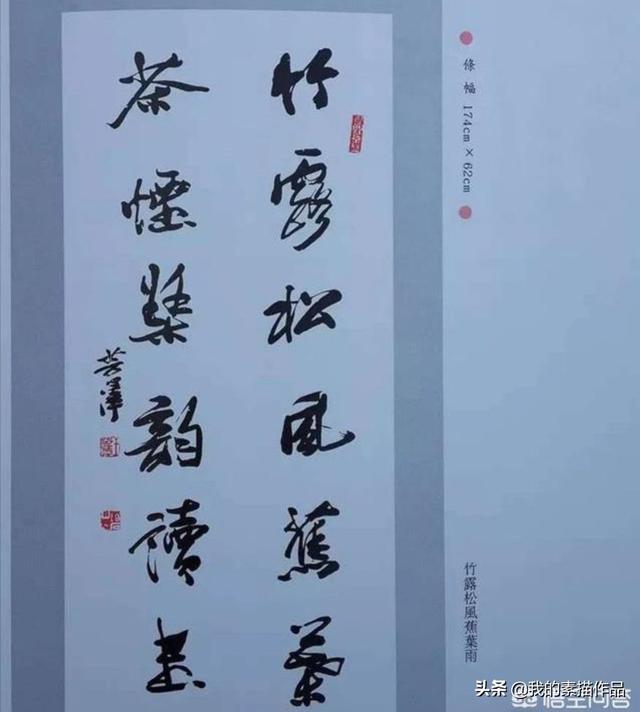 條幅 174cm×62cm
竹露松風蕉葉
茶煙琴韻讀書
竹露松風蕉葉雨
头条 @我的素描作品
悟空问答